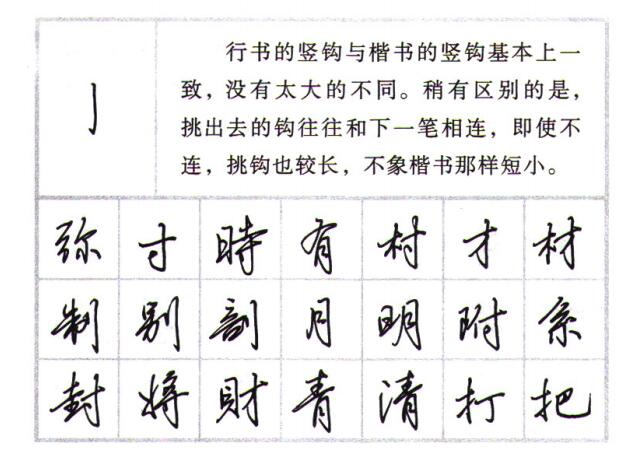 亅
行书的竖钩与楷书的竖钩基本上一
致，没有太大的不同。稍有区别的是，
挑出去的钩往往和下一笔相连，即使不
连，挑钩也较长，不象楷书那样短小。
弥 寸 時 有 村 才 材
制 别 剖 月 明 附 系
封 将 財 青 清 打 把